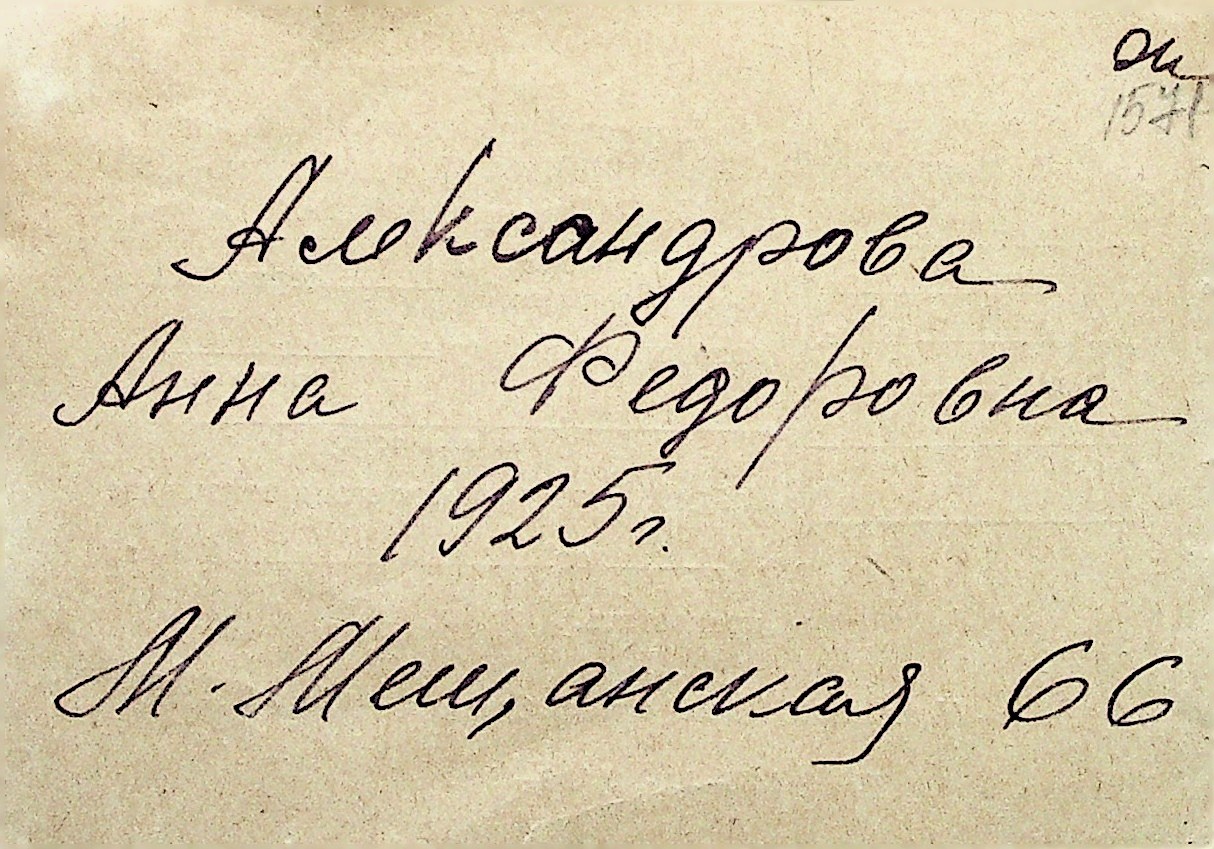 1571
Александрова
Анна Федоровна
1925г.
М. Мещанская 66